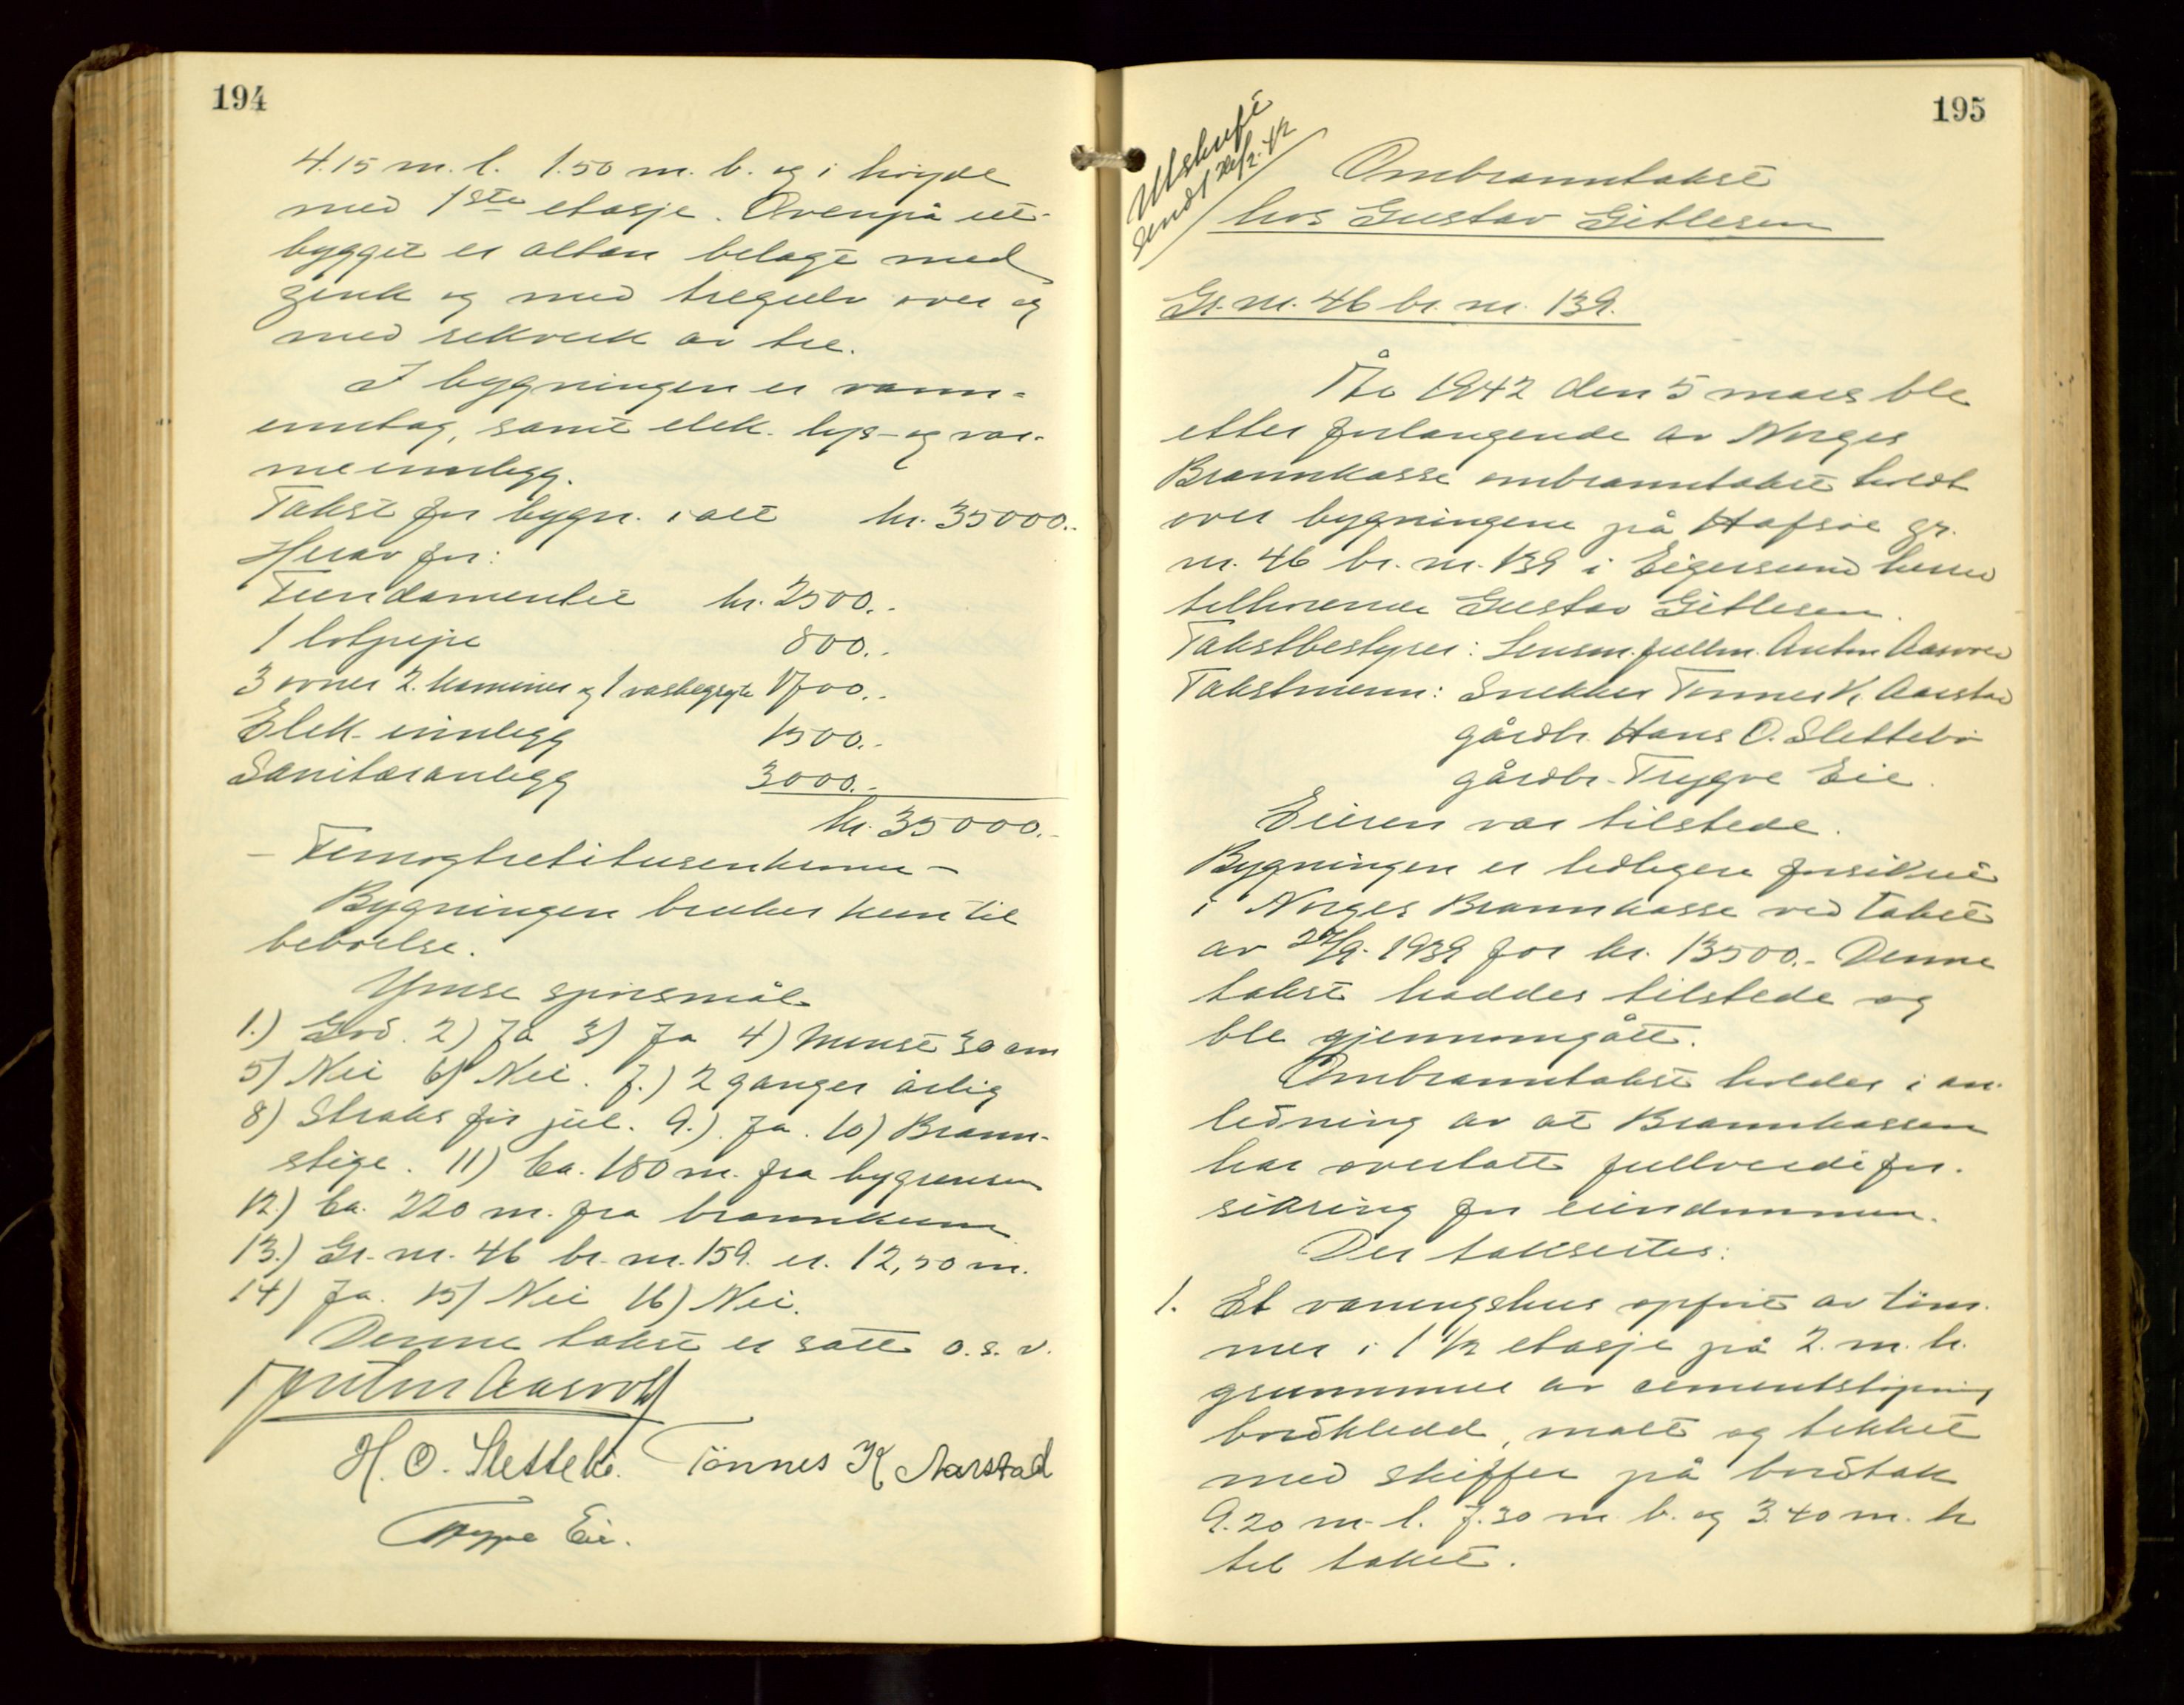 194
4.15 m. l. 1.50 m. b. og i høyde
med 1ste etasje. Ovenpå ut-
bygget er altan belagt med
zink og med tregulv over og
med rekverk av tre.
I bygningen er vann-
inntag, samt elek. lys- og var-
meinnlegg.
Takst for bygn. i alt kr. 35000.-
Herav for:
Fundamentet kr. 2500.-
1 lotpipe 800.-
3 ovner 2. kaminer og 1 vaskegryte 1700.-
Elek. innlegg 1500.-
Sanitæranlegg 3000.-
kr. 35000.-
- Femogtrettitusenkroner -
Bygningen brukes kun til
beboelse.
Ymse spørsmål
1.) God. 2) Ja 3) Ja 4) Minst 30 cm
5) Nei 6) Nei. 7.) 2 ganger årlig
8) Straks før jul. 9.) Ja. 10) Brann-
stige. 11) Ca. 180 m. fra bygrensen
12.) Ca. 220 m. fra brannkum
13.) Gr. nr. 46 br. nr. 159. er. 12,50 m.
14) Ja. 15) Nei 16) Nei.
Denne takst er satt o.s.v.
Anton Aasvold
H. O. Slettebø. Tönnes K Aarstad
Trygve Eie.
195
Utskrift
sendt
Ombranntakst
hos Gustav Gitlesen
Gr. nr. 46 br. nr. 139.
År 1942 den 5 mars ble
etter forlangende av Norges
Brannkasse ombranntakst holdt
over bygningene på Hafsøe gr.
nr. 46 br. nr. 139 i Eigersund herred
tilhørende Gustav Gitlesen.
Takstbestyrer: Lensm. fullm. Anton Aasvold
Takstmenn: Snekker Tønnes K. Aarstad
gårdbr. Hans O. Slettebø
gårdbr. Trygve Eie.
Eieren var tilstede.
Bygningen er tidligere forsikret
i Norges Brannkasse ved takst
av 27/9-1939 for kr. 13500.- Denne
takst haddes tilstede og
ble gjennomgått.
Ombranntakst holdes i an-
ledning av at Brannkassen
har overtatt fullverdifor-
sikring for eiendommen.
Der takseres:
1. Et våningshus opført av tøm-
mer i 1 1/2 etasje på 2. m. h.
grunnmur av cementstøpning
bordkledd, malt og tekket
med skiffer på bordtak
9.20 m. l. 7.30 m. b. og 3.40 m. h
til taket.